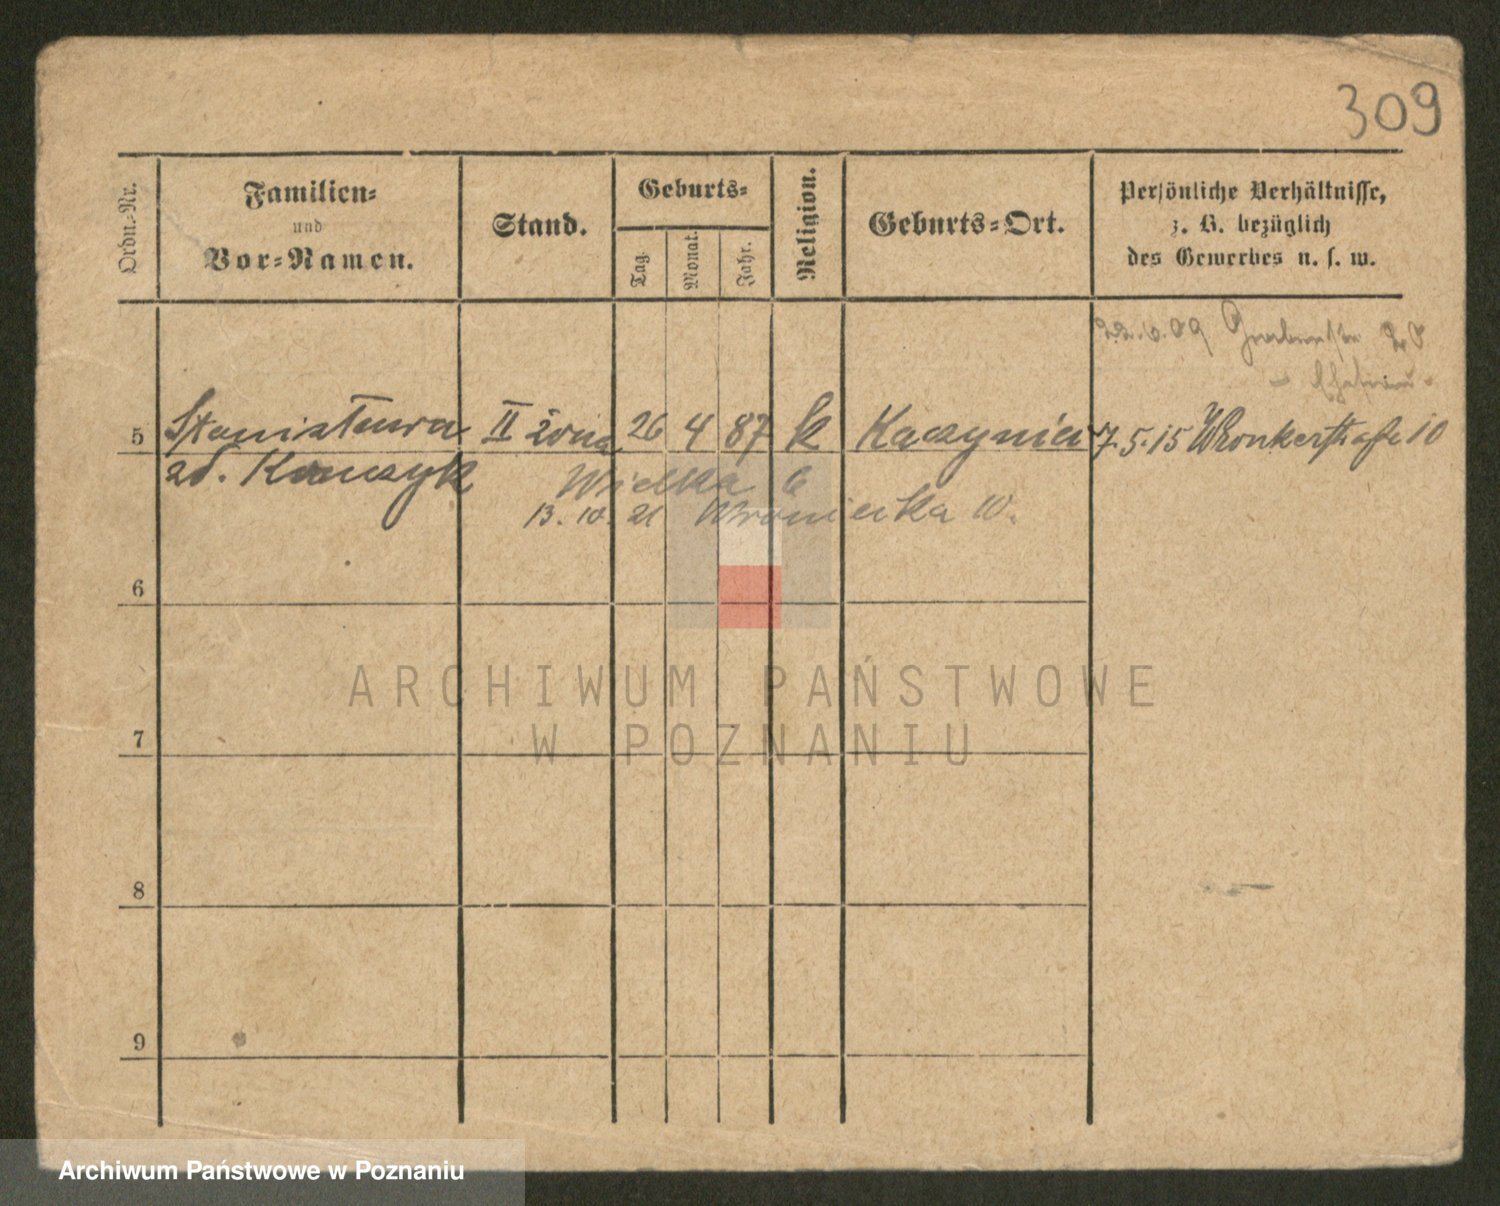 309
Ordn.-Nr.
Familien-
und
Vor-Namen.
Stand.
Geburts-
Tag.
Monat.
Jahr.
Religion.
Geburts-Ort.
Persönliche Verhältnisse,
z. B. bezüglich
des Gewerbes u. s. w.
22.6.09
5 Stanisława II żona 26 4 87 k Kaczynia 7.5.15 Wronkerstraße 10
zd.
Wielka 6
13. 10. 21 Wroniecka 10.
6
7
8
9
ARCHIWUM PAŃSTWOWE
W POZNANIU
Archiwum Państwowe w Poznaniu